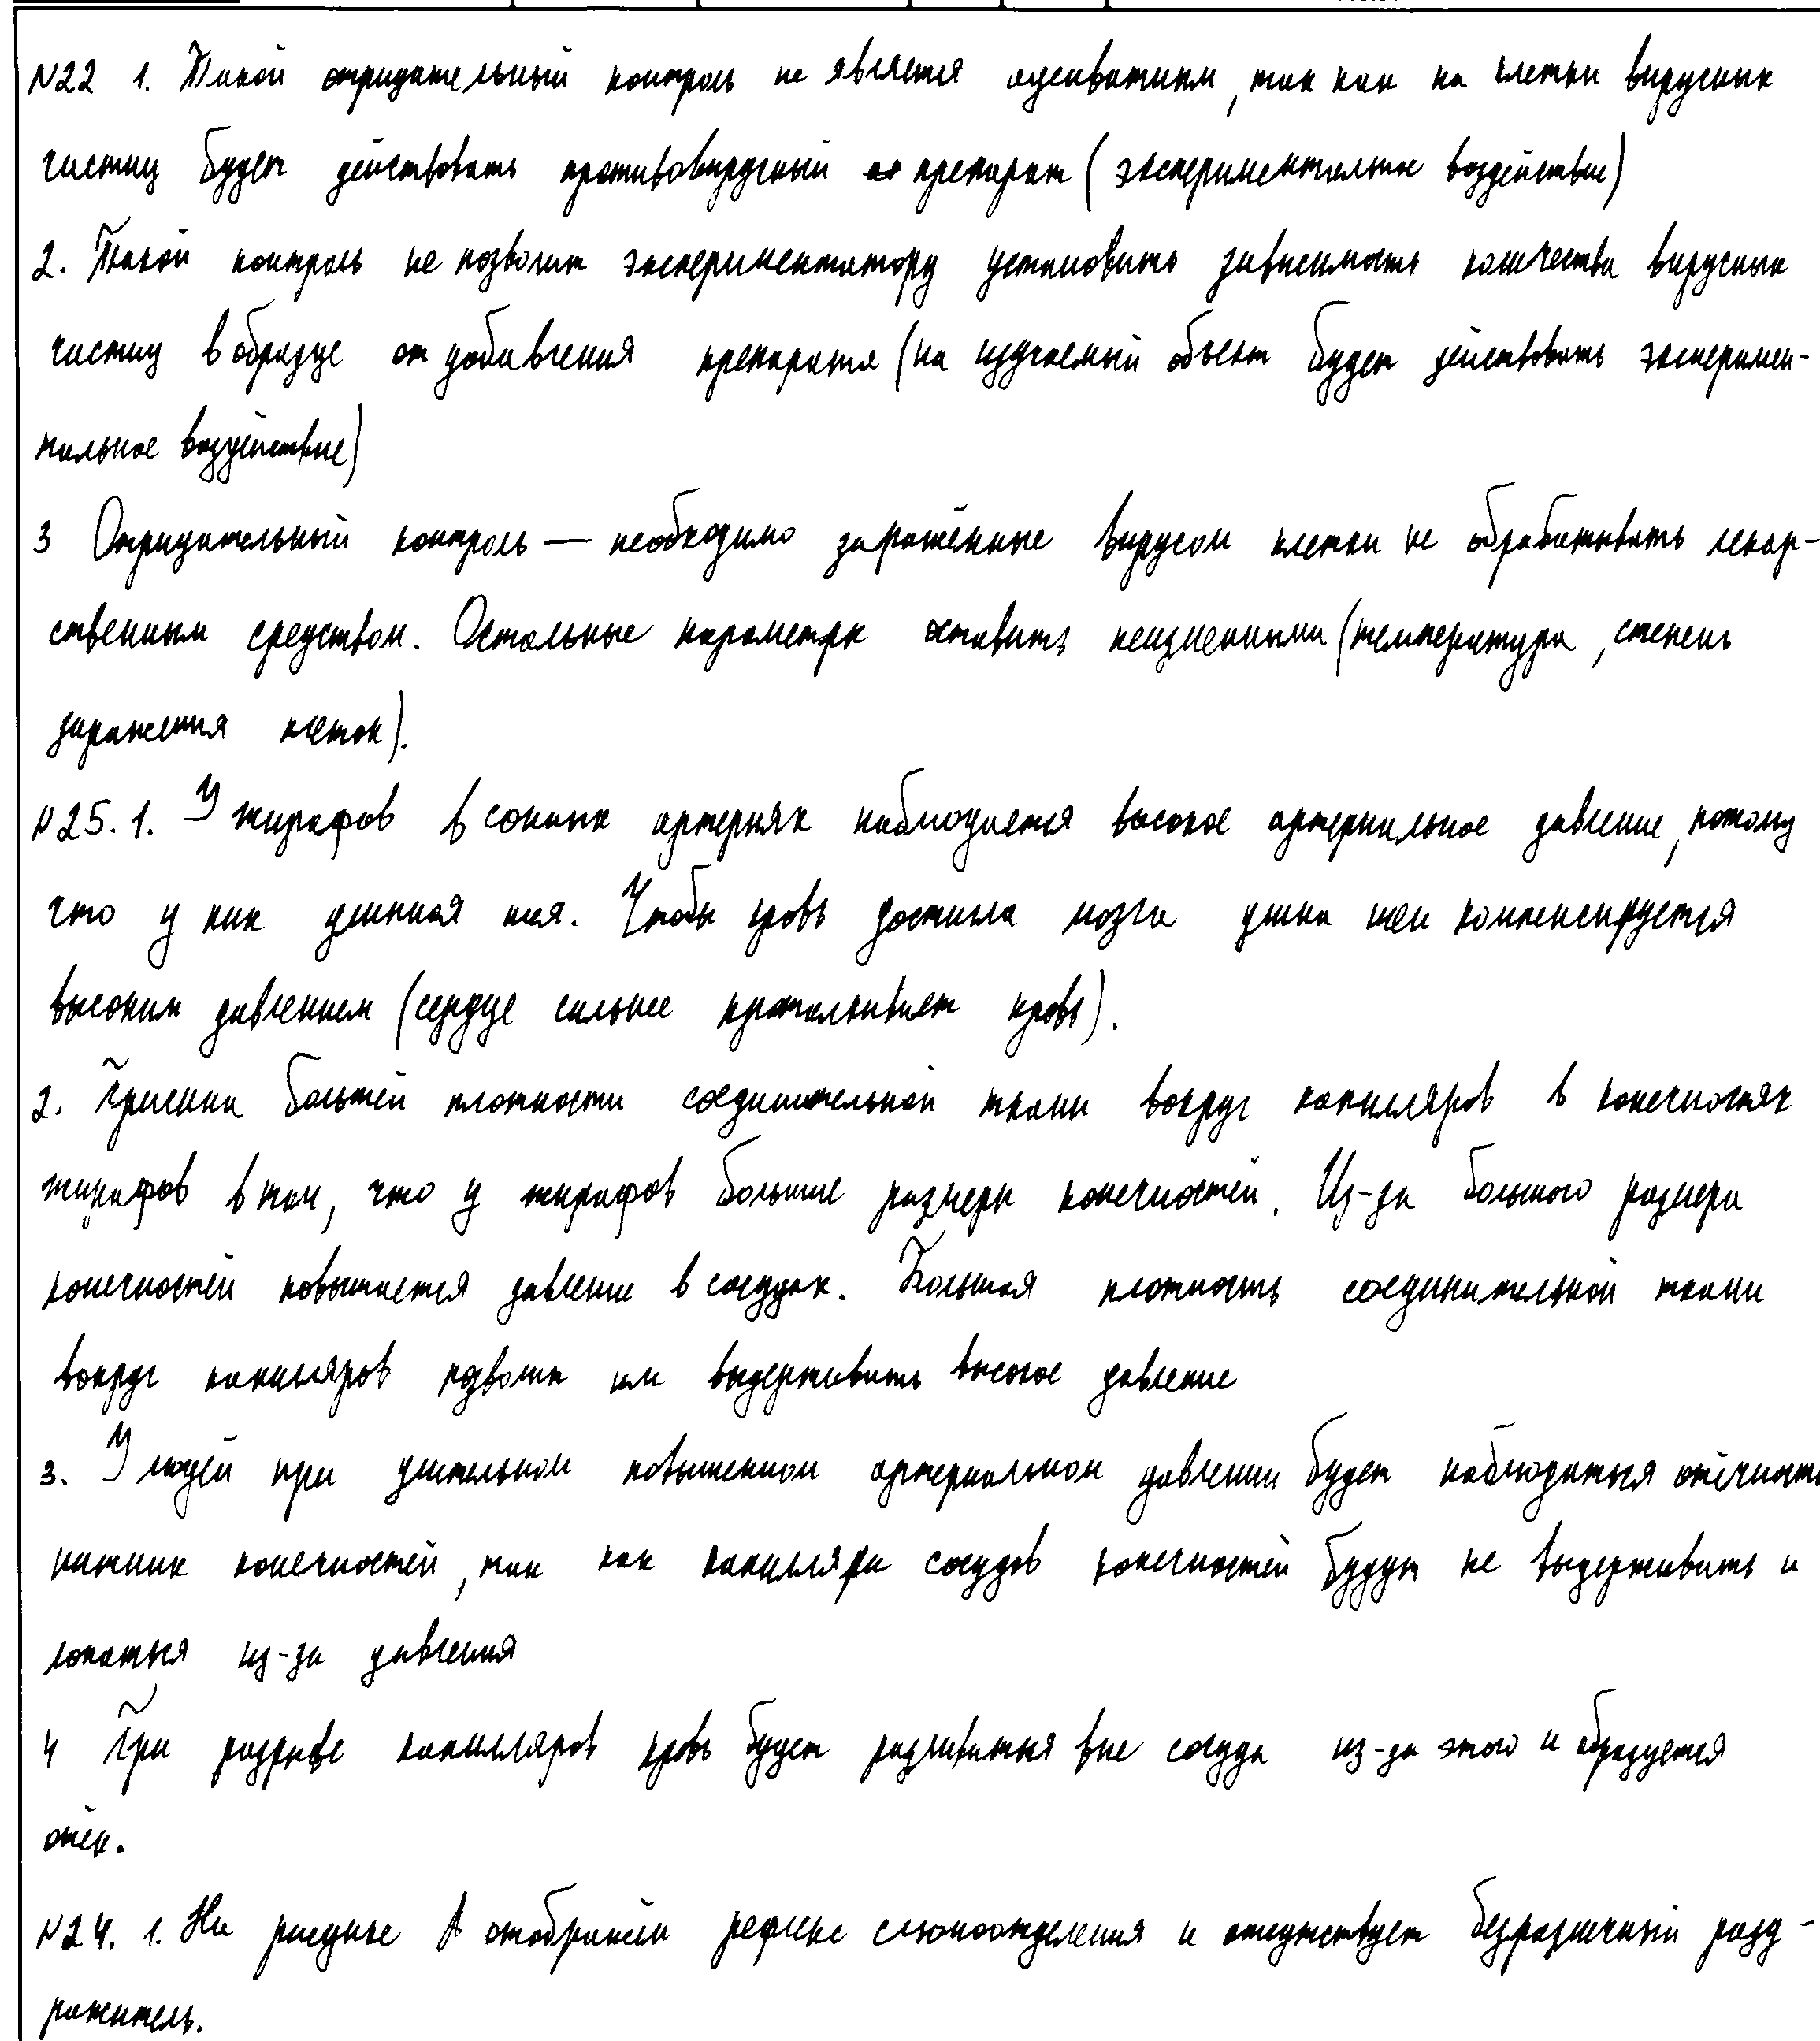 N22 1. Такой отрицательный контроль не является адекватным, так как на клетки вирусных
частиц будет действовать противовирусный препарат (экспериментальное воздействие)
2. Такой контроль не позволит экспериментатору установить зависимость количества вирусных
частиц в образце от добавления препарата (на изучаемый объект будет действовать эксперимен-
тальное воздействие)
3 Отрицательный контроль — необходимо заражённые вирусом клетки не обрабатывать лекар-
ственным средством. Остальные параметры оставить неизменными (температура, степень
заражения клеток).
N25. 1. У жирафов в сонных артериях наблюдается высокое артериальное давление, потому
что у них длинная шея. Чтобы кровь достигла мозга длина шеи компенсируется
высоким давлением (сердце сильнее проталкивает кровь).
2. Причина большей плотности соединительной ткани вокруг капилляров в конечностях
жирафов в том, что у жирафов большие размеры конечностей. Из-за большого размера
конечностей повышается давление в сосудах. Большая плотность соединительной ткани
вокруг капилляров позволит им выдерживать высокое давление
3. У людей при длительном повышенном артериальном давлении будет наблюдаться отёчность
нижних конечностей, так как капилляры сосудов конечностей будут не выдерживать и
лопаться из-за давления
4 При разрыве капилляров кровь будет разливаться вне сосуда из-за этого и образуется
отёк.
N24. 1. На рисунке А отображён рефлекс слюноотделения и отсутствует безразличный разд-
ражитель.